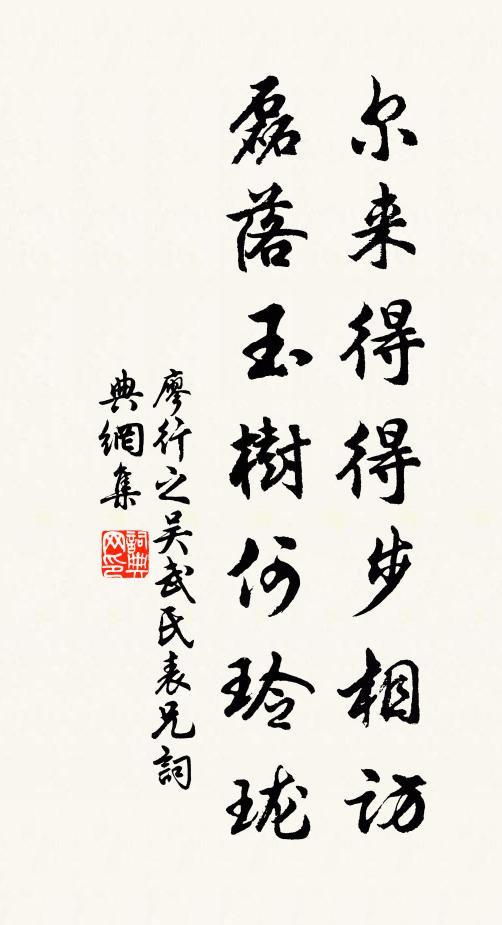 尔来得得步相访
磊落玉樹何玲珑
廖行之吴武民表兄詞
典網集
詞典
网印